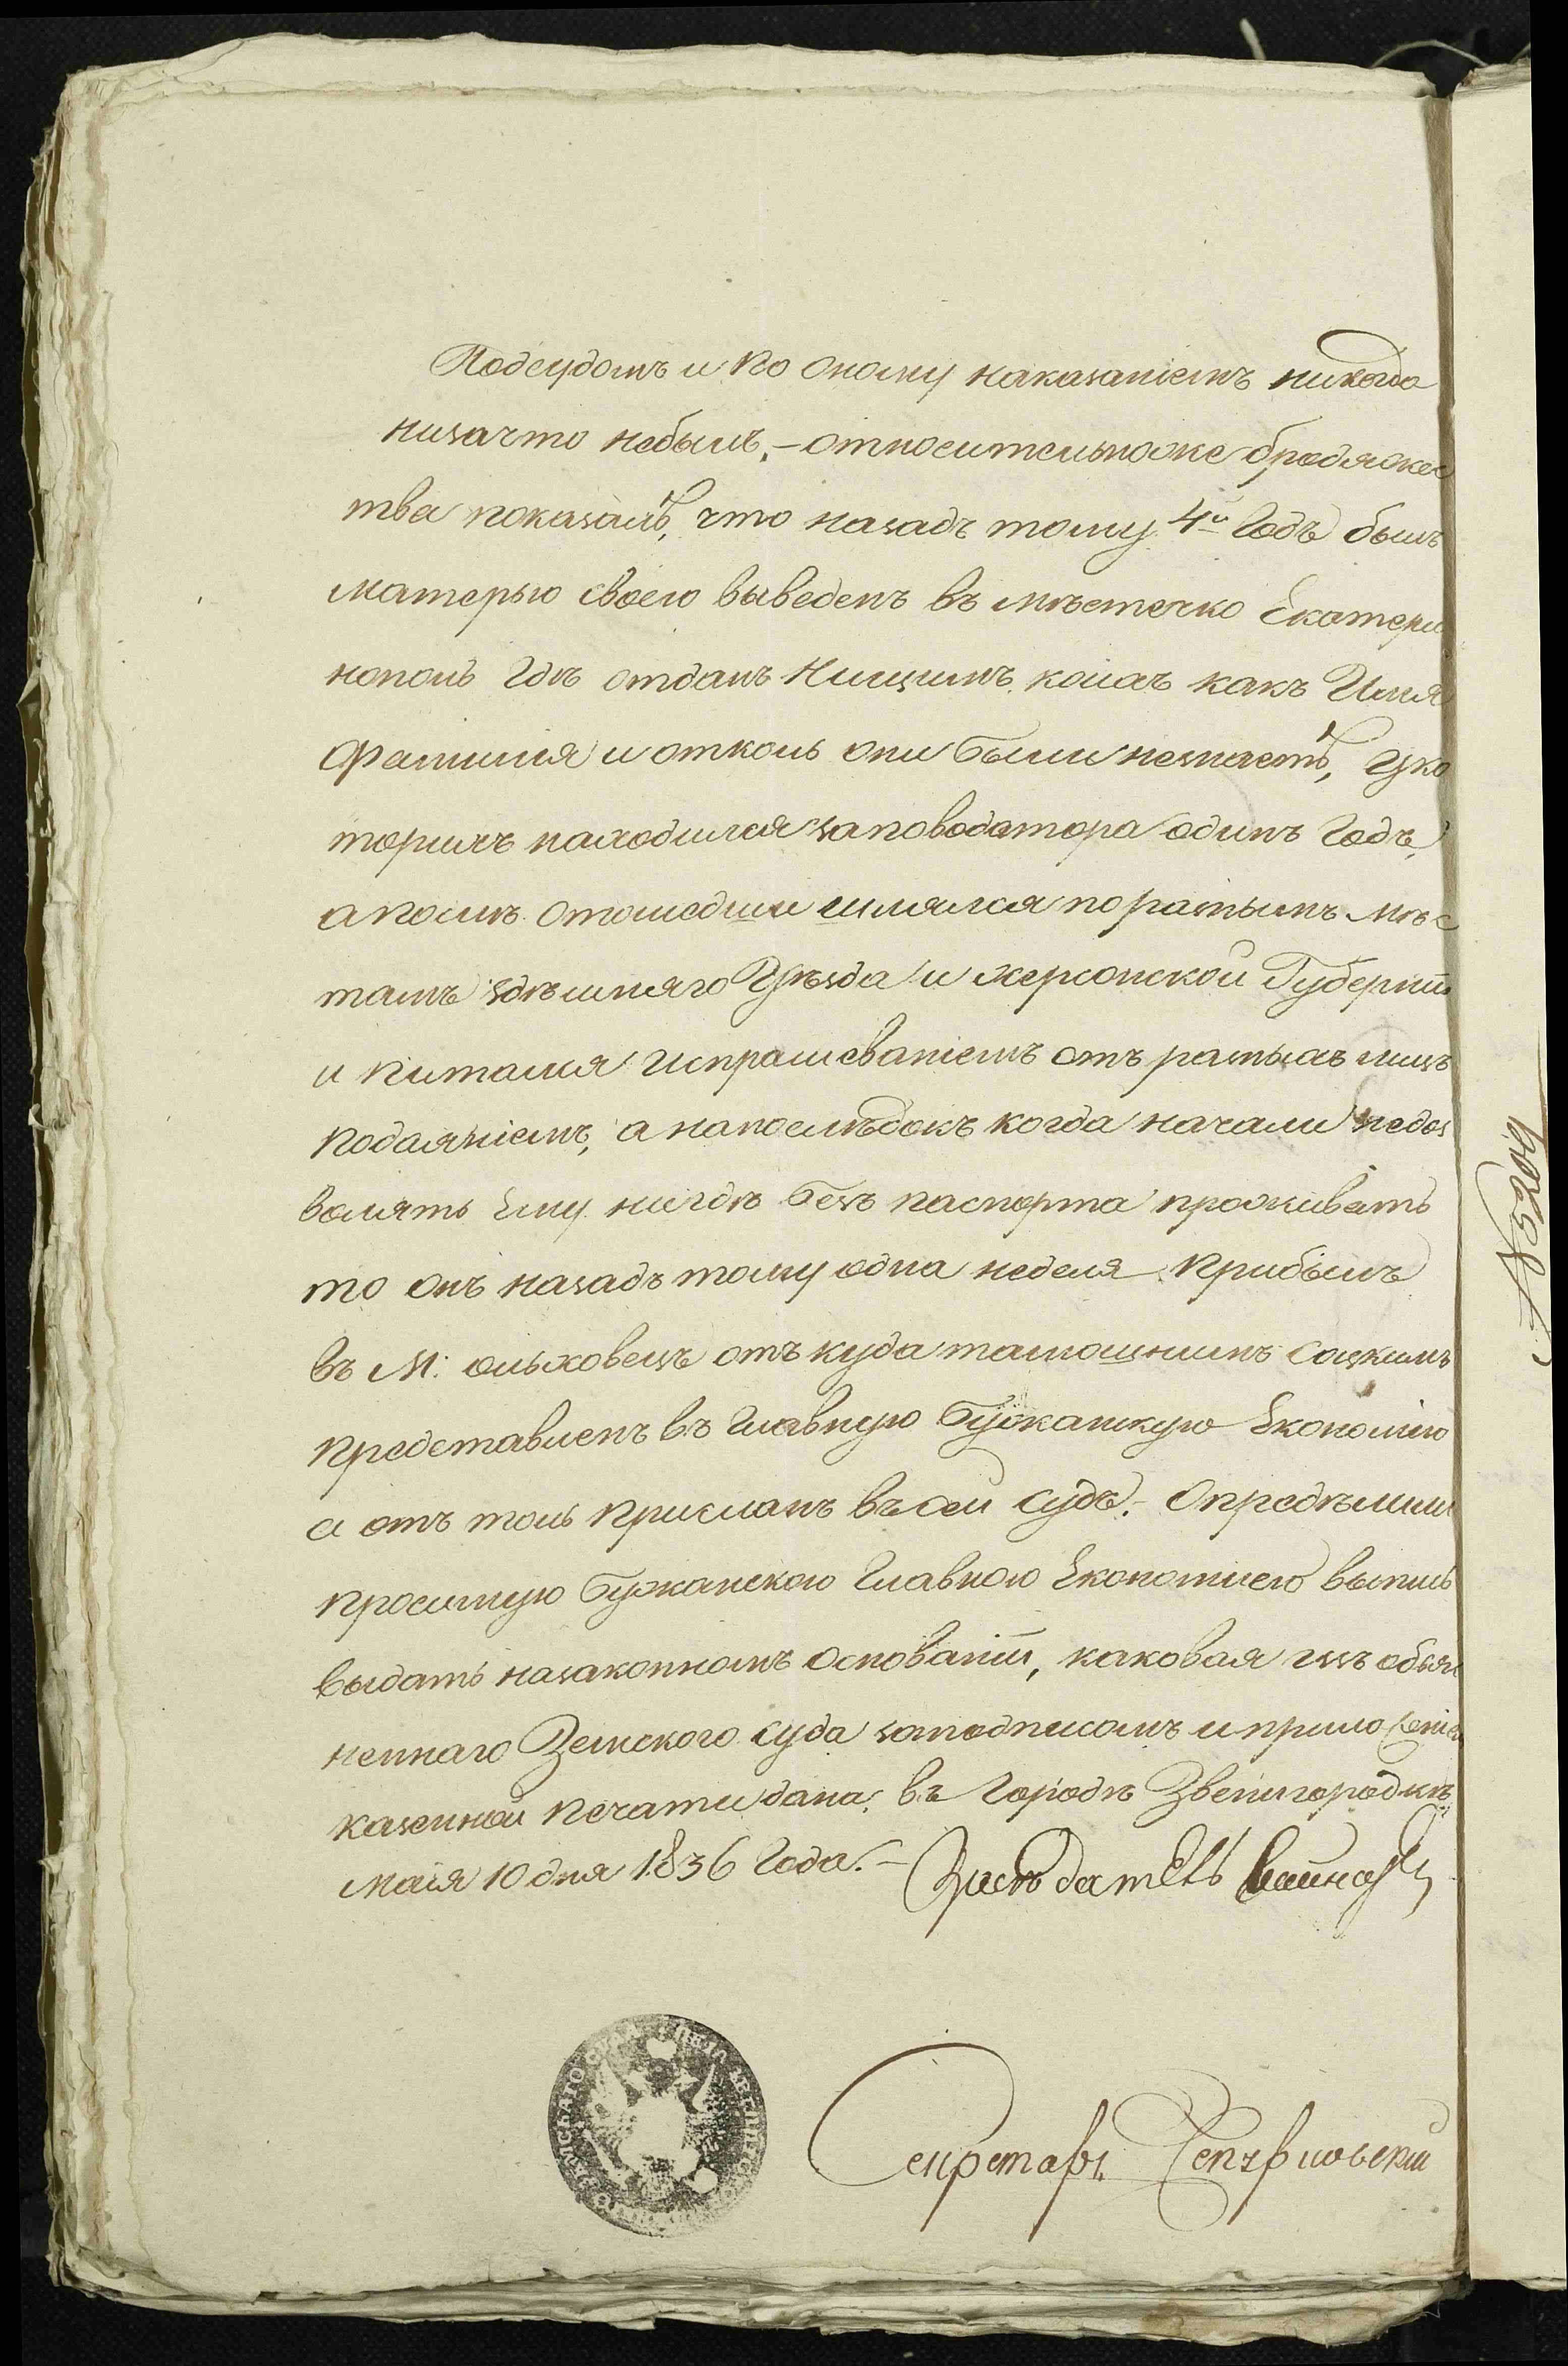 Подсудомъ и по оному наказаніемъ никогда
низачто небылъ, – относительноже бродяжес
тва показалъ, что назадъ тому 4й годъ былъ
матерью своею выведенъ въ мѣстечко Екатери
нополь гдѣ отданъ Нищимъ, коихъ какъ Имя
Фамилія и отколь они были незнаетъ, Уко
торихъ находился заповодатора одинъ годъ,
а помъ отошедши шлялся по разнымъ мѣс
тамъ здѣшняго Уѣзда и херсонской Губерніи
и питался Испрашеваніемъ отъ разныхъ лицъ
подаяніемъ, а напослѣдокъ когда начали недоз
волять Ему нигдѣ безъ паспорта проживать
то онъ назадъ тому одна неделя прибылъ
въ М: ольховецъ отъ куда тамошнимъ соцкимъ
представленъ въ Главную Бужанскую Економію
а отъ толь присланъ въ сей судъ. – Опредѣлили
просимую Бужанскою Главною Економиею выпись
выдать назаконномъ основаніи, каковая изъ обьяс
неннаго Земского суда заподписомъ и приложеніемъ
казенной печати дана, въ городѣ Звенигородкѣ
маія 10 дня 1836 года. – Засѣдатель
Секретарь
№5209